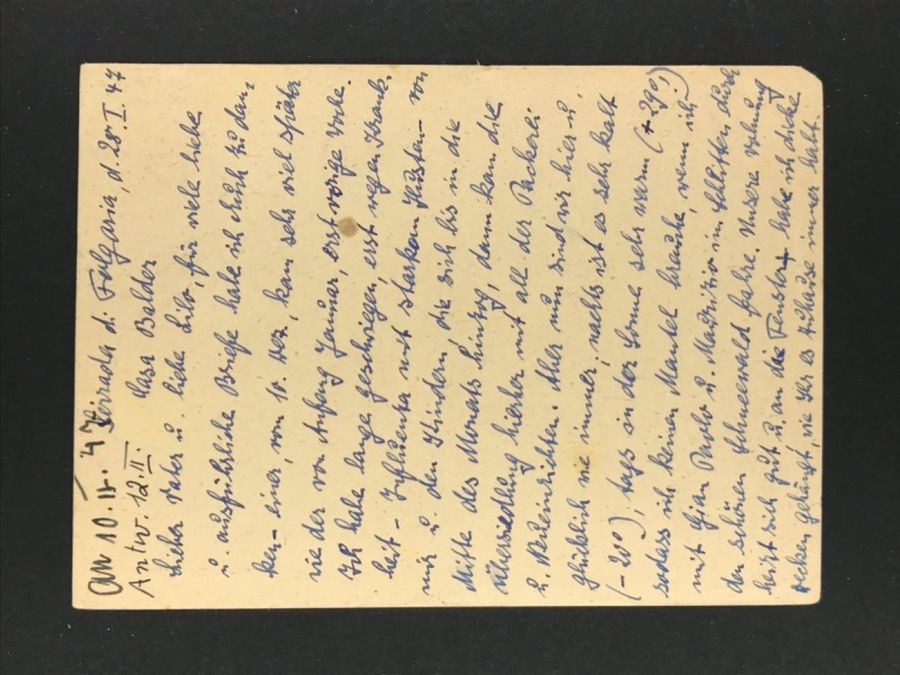 an 10. II. 47
Serrada di Folgaria, d. 28. I. 47
Antw. 12. II.
Casa Balder
Lieber Vater u. liebe Lilo, für viele liebe
u. ausführliche Briefe habe ich Euch zu dan-
ken – einer, vom 10. Dez., kam sehr viel später
wie der von Anfang Januar, erst vorige Woche.
Ich habe lange geschwiegen, erst wegen Krank-
heit – Influenza mit starkem Husten – von
mir u. den Kindern, die sich bis in die
Mitte des Monats hinzog, dann kam die
Übersiedlung hierher mit all der Packerei
u. Neueinrichten. Aber nun sind wir hier u.
glücklich wie immer; nachts ist es sehr kalt
(– 20°), tags in der Sonne sehr warm (+ 29°,)
sodass ich keinen Mantel brauche, wenn ich
mit Gian Paolo u. Maurizio im Schlitten durch
den schönen Schneewald fahre. Unsere Wohnung
heizt sich gut u. an die Fenster habe ich dicke
Decken gehängt, wie Ihr es zuhause immer habt.